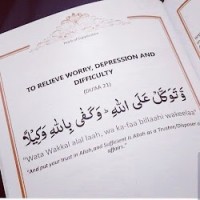 TO RELIEVE WORRY, DEPRESSION AND
DIFFICULTY
وَتَوَكَّلْ عَلَى اللَّهِ ۚ وَكَفَىٰ بِاللَّهِ وَكِيلًا
"Wata Wakkal alal laah, wa ka-faa billaahi wakeelaa"
"And put your trust in Allah,and Sufficient is Allah as a Trustee/Disposer of
affairs."